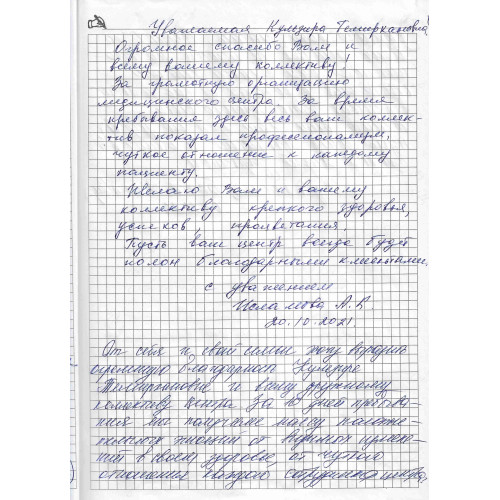 Уважаемая Кульзира Темирхановна!
Огромное спасибо Вам и
всему вашему коллективу!
За грамотную организацию
медицинского центра. За время
пребывания здесь весь ваш коллек-
тив показал профессионализм,
чуткое отношение к каждому
пациенту.
Желаю Вам и вашему
коллективу крепкого здоровья,
успехов, процветания.
Пусть ваш центр всегда будет
полон благодарными клиентами.
с уважением
Исламова А.К.
20.10.2021.
От себя и семьи хочу выразить
огромную благодарность
Темирхановне и всему дружному
коллективу центра. За дней пребыва-
ния мы получили массу положи-
тельных эмоций от
в своем здоровье, от чуткого
отношения каждого сотрудника центра,